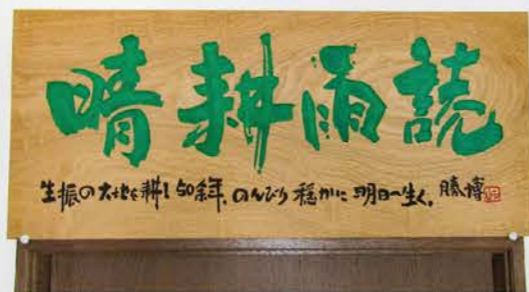 晴耕雨読
生振の大地を耕し50余年、のんびり穏かに明日へ生く。勝博